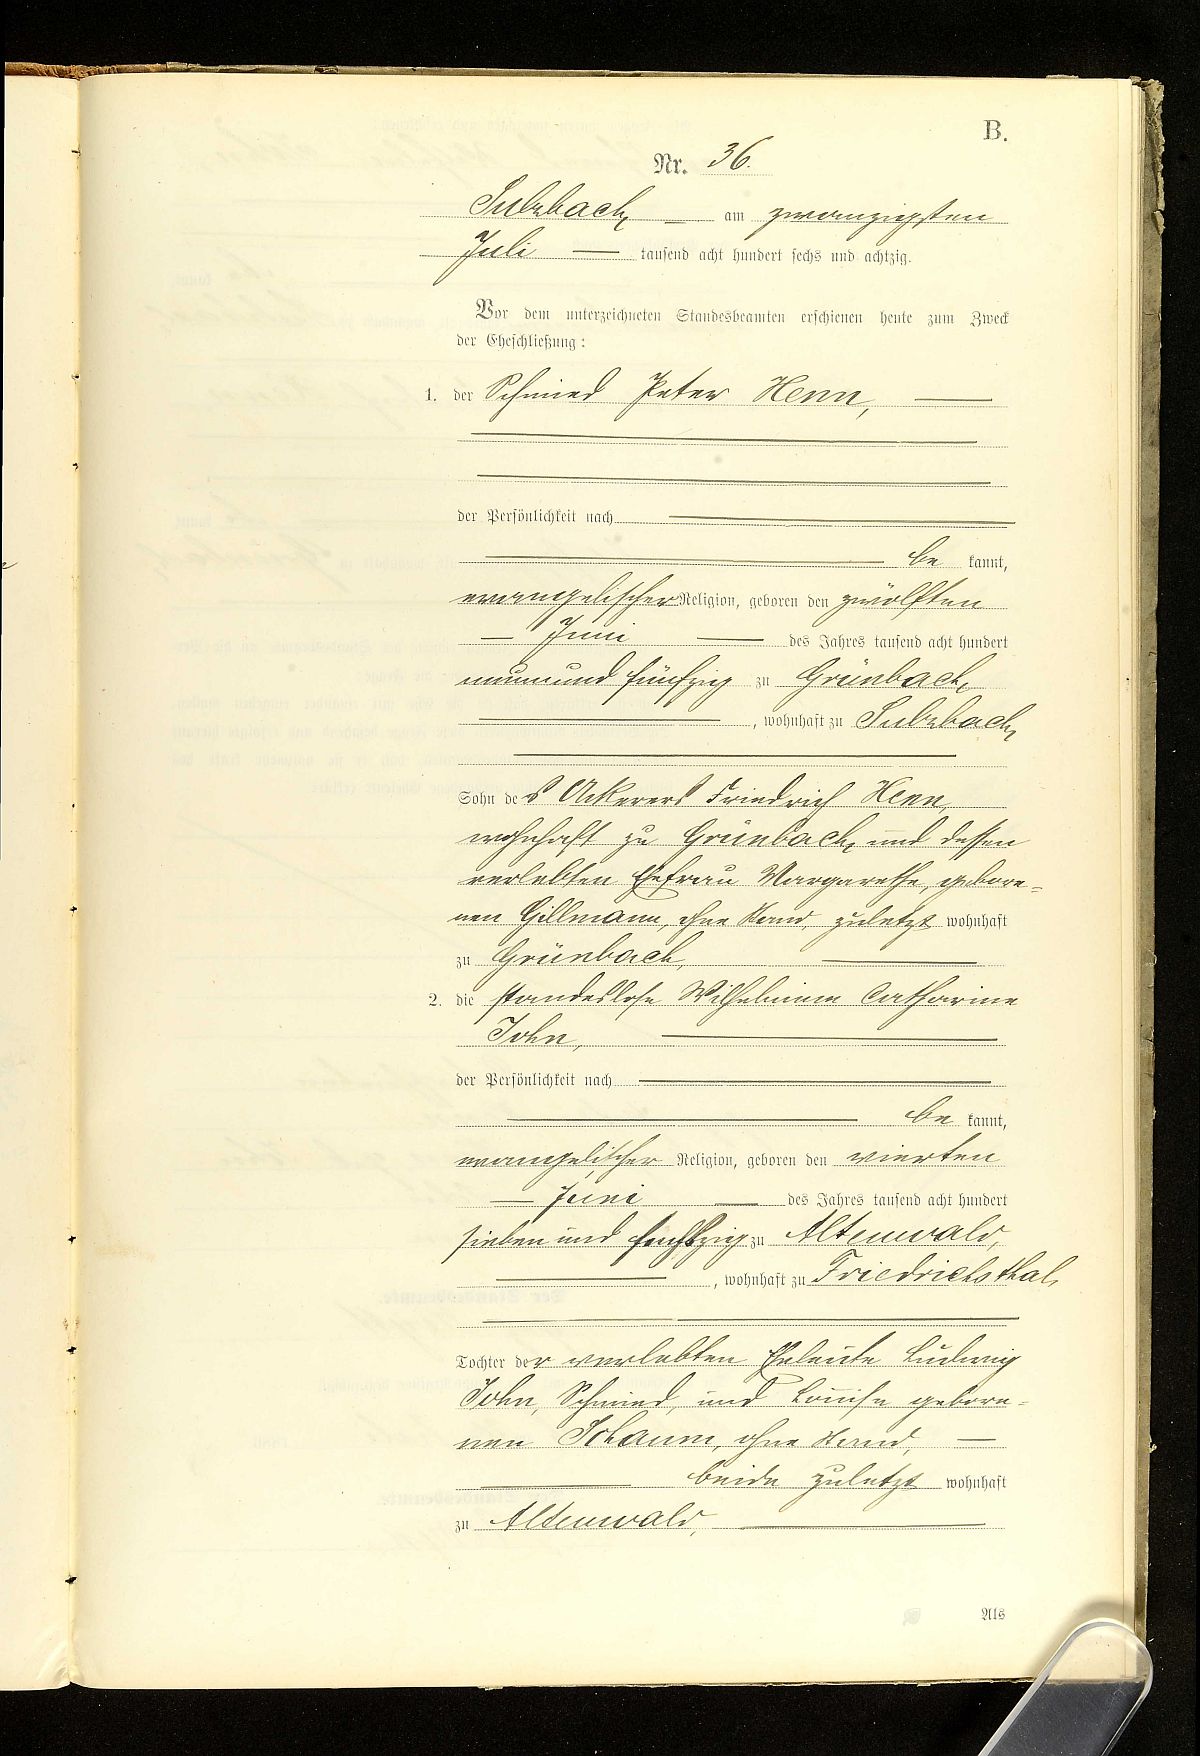 B.
Nr. 36.
Sulzbach, am zwanzigsten
Juli tausend acht hundert sechs und achtzig.
Vor dem unterzeichneten Standesbeamten erschienen heute zum Zweck
der Eheschließung:
1. der Schmied Peter Henn,
der Persönlichkeit nach
be kannt,
evangelischer Religion, geboren den zwölften
Juni des Jahres tausend acht hundert
neunundfünfzig zu Grünbach,
, wohnhaft zu Sulzbach,
Sohn des Ackerers Friedrich Henn,
wohnhaft zu Grünbach, und dessen
verlebten Ehefrau Margarethe, gebore-
nen Gillmann, ohne Stand, zuletzt wohnhaft
zu Grünbach,
2. die standeslose Wilhelmine Catharine
John,
der Persönlichkeit nach
be kannt,
evangelischer Religion, geboren den vierten
Juni des Jahres tausend acht hundert
sieben und sechszig zu Altenwald,
, wohnhaft zu Friedrichsthal,
Tochter der verlebten Eheleute Ludwig
John, Schmied, und Louise gebore-
nen Schaum, ohne Stand,
beide zuletzt wohnhaft
zu Altenwald,
Als